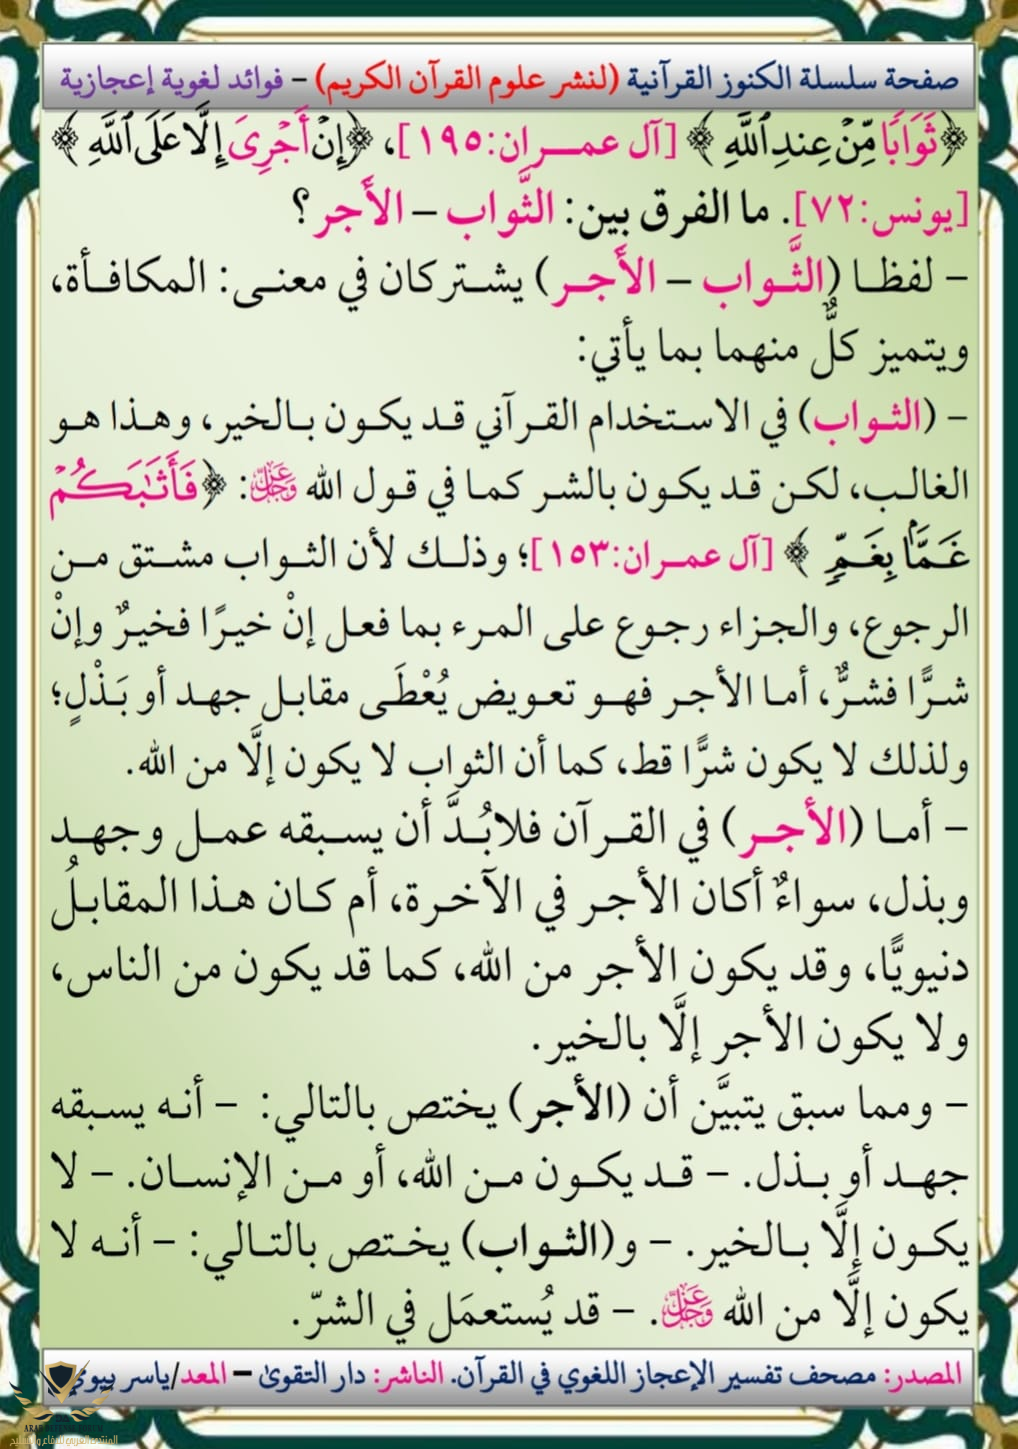 صفحة سلسلة الكنوز القرآنية (لنشر علوم القرآن الكريم) – فوائد لغوية إعجازية
﴿ثَوَابًا مِّنْ عِندِ ٱللَّهِ﴾ [آل عمـــران:١٩٥]، ﴿إِنْ أَجْرِىَ إِلَّا عَلَى ٱللَّهِ﴾
[يونس:٧٢]. ما الفرق بين: الثَّواب – الأَجر؟
– لفظـا (الثَّـواب – الأَجـر) يشـتركان في معنـى: المكافـأة،
ويتميز كلٌّ منهما بما يأتي:
– (الثـواب) في الاسـتخدام القـرآني قـد يكـون بـالخير، وهـذا هـو
الغالـب، لكـن قـد يكـون بالشـر كمـا في قـول الله عَزَّ وَجَلَّ: ﴿فَأَثَٰبَكُمْ
غَمًّۢا بِغَمٍّ﴾ [آل عمـران:١٥٣]؛ وذلـك لأن الثـواب مشـتق مـن
الرجـوع، والجـزاء رجـوع على المـرء بما فعـل إنْ خيـرًا فخيـرٌ وإنْ
شـرًّا فشـرٌّ، أمـا الأجـر فهـو تعـويض يُعْطَـى مقابـل جهـد أو بَـذْلٍ؛
ولذلك لا يكون شرًّا قط، كما أن الثواب لا يكون إلَّا من الله.
– أمـا (الأجـر) في القـرآن فلابُـدَّ أن يسـبقه عمـل وجهـد
وبذل، سواءٌ أكان الأجـر في الآخـرة، أم كـان هـذا المقابـلُ
دنيويًّا، وقد يكون الأجر من الله، كما قد يكون من الناس،
ولا يكون الأجر إلَّا بالخير.
– ومما سبق يتبيَّن أن (الأجر) يختص بالتالي: – أنـه يسـبقه
جهـد أو بـذل. – قـد يكـون مـن الله، أو مـن الإنسـان. – لا
يكـون إلَّا بـالخير. – و(الثـواب) يخـتص بالتـالي: – أنـه لا
يكون إلَّا من الله عَزَّ وَجَلَّ. – قد يُستعمَل في الشرّ.
المصدر: مصحف تفسير الإعجاز اللغوي في القرآن. الناشر: دار التقوىٰ – المعد/ياسر بيومي